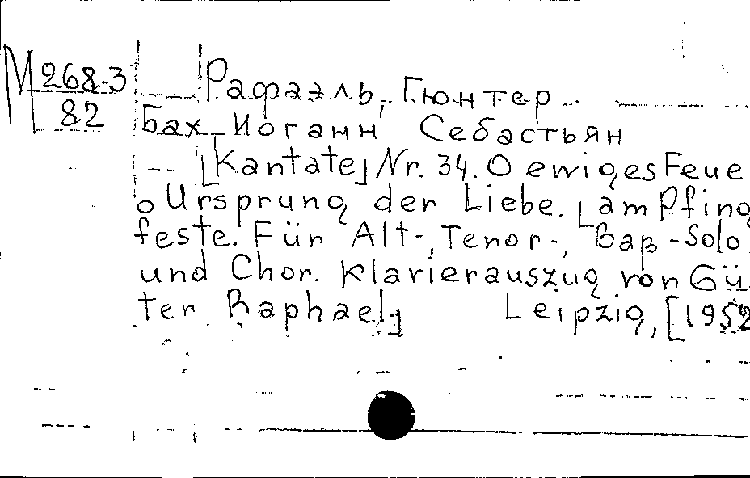 М 268-3
82
Рафаэль, Гюнтер
Бах Иоганн Себастьян
[Kantate] Nr. 34. O ewiges Feue
o Ursprung der Liebe. [am Pfing
feste. Für Alt-, Tenor-, Baß-Solo
und Chor. Klavierauszug von Gü
ter Raphael.] Leipzig, [1952